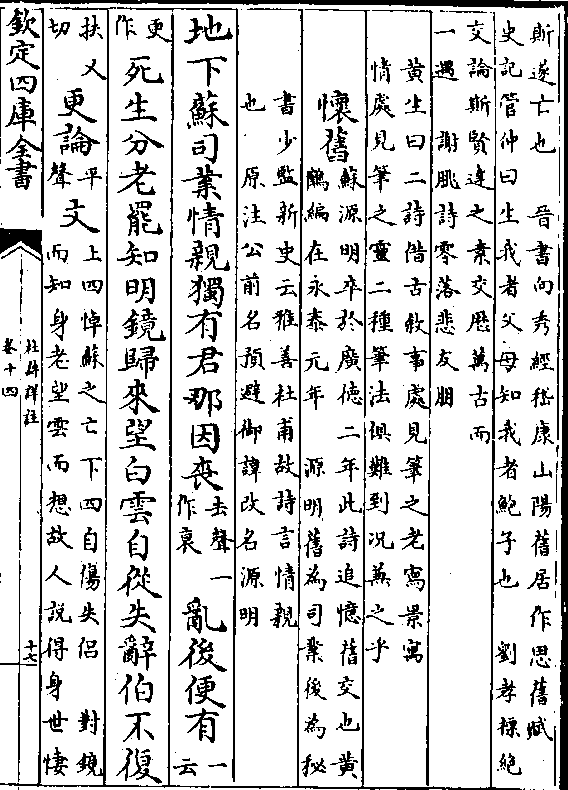 斯遂亡也　晉書向秀經嵇康山陽舊居作思舊賦
史記管仲曰生我者父母知我者鮑子也　劉孝標絶
交論斯賢達之素交厯萬古而
一遇　謝朓詩零落悲友朋
黄生曰二詩借古敘事處見筆之老寫景寓
情處見筆之靈二種筆法俱難到况兼之乎
懷舊 蘇源明卒於廣德二年此詩追憶舊交也黄
鶴編在永泰元年　源明舊為司業後為秘
書少監新史云雅善杜甫故詩言情親
也　原注公前名預避御諱改名源明
地下蘇司業情親獨有君那因喪 去聲一作衷 亂後便有 一云
更作 死生分老罷知明鏡歸來望白雲自從失辭伯不復
扶又切 更論 平聲 文 上四悼蘇之亡下四自傷失侣　對鏡
而知身老望雲而想故人説得身世悽
欽定四庫全書
杜詩詳註
卷十四
十七